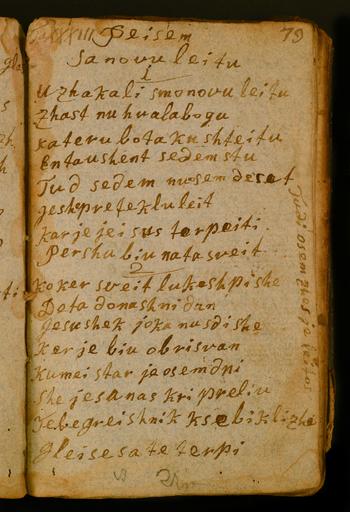 Peisem
79
Sa novu leitu
1
u zhakali smo novu leitu
zhast nu hvala bogu
kateru bota kushteitu
Entaushent sedemstu
Tud sedem nu semdeset
jeshpreteklu leit
karje jeisus terpeiti
Pershu biu nata sveit
2
koker sveit lukeshpishe
Dota donashni dan
jesushek joka nusdishe
Kerje biu obrisvan
Kumei star je osem dni
she jesanas kri preliu
Tebegreishnik ksebi klizhe
Gleise sa te terpi